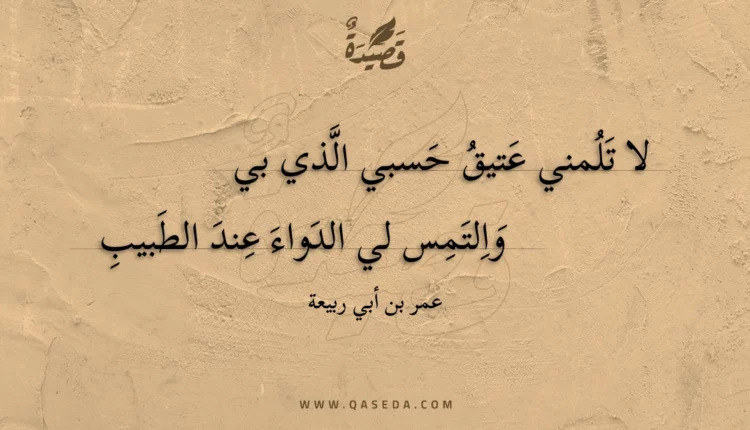 قَصِيدَةٌ
لا تَلُمني عَتيقُ حَسبي الَّذي بي
وَاِلتَمِس لي الدَواءَ عِندَ الطَبيبِ
عمر بن أبي ربيعة
WWW.QASEDA.COM